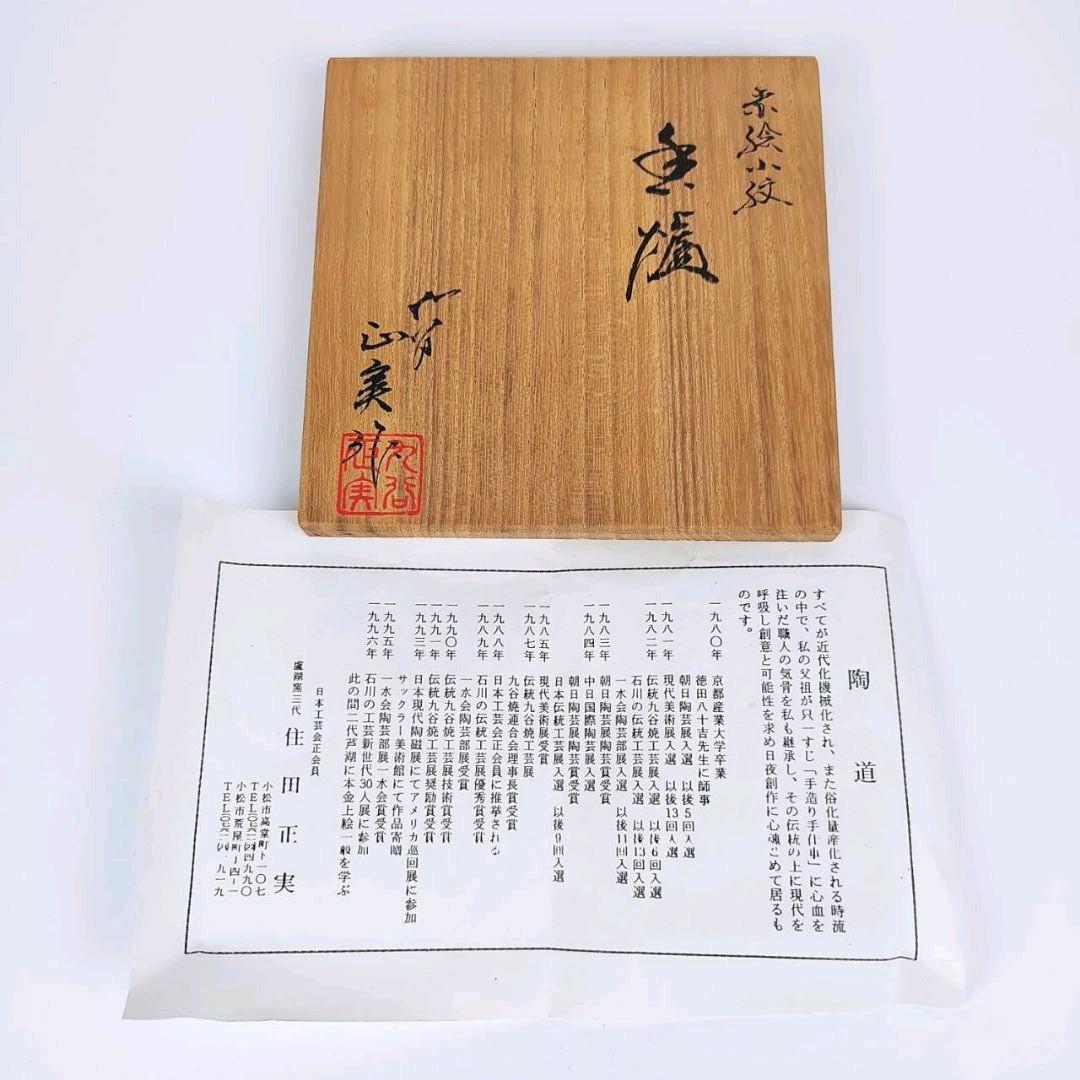 赤絵小紋
香爐
九谷
正実作
九谷
正実
陶道
すべてが近代化機械化され、また俗化量産化される時流
の中で、私の父祖が只一すじ「手造り手仕事」に心血を
注いだ職人の気骨を私も継承し、その伝統の上に現代を
呼吸し創意と可能性を求め日夜創作に心魂こめて居るも
のです。
一九八〇年 京都産業大学卒業
徳田八十吉先生に師事
朝日陶芸展入選 以後5回入選
一九八一年 現代美術展入選 以後13回入選
一九八二年 伝統九谷焼工芸展入選 以後6回入選
石川の伝統工芸展入選 以後13回入選
一水会陶芸部展入選 以後11回入選
一九八三年 朝日陶芸展陶芸賞受賞
一九八四年 中日国際陶芸展入選
朝日陶芸展陶芸賞受賞
日本伝統工芸展入選 以後9回入選
一九八五年 現代美術展受賞
一九八七年 伝統九谷焼工芸展
九谷焼連合会理事長賞受賞
一九八八年 日本工芸会正会員に推挙される
一九八九年 石川の伝統工芸展優秀賞受賞
一水会陶芸部展受賞
一九九〇年 伝統九谷焼工芸展技術賞受賞
一九九一年 伝統九谷焼工芸展奨励賞受賞
一九九三年 日本現代陶磁展にてアメリカ巡回展に参加
サックラー美術館にて作品寄贈
一九九五年 一水会陶芸部展一水会賞受賞
一九九六年 石川の工芸新世代30人展に参加
此の間二代芦湖に本金上絵一般を学ぶ
日本工芸会正会員
盧湖窯三代 住田正実
小松市高堂町ト一〇七
小松市荒屋町